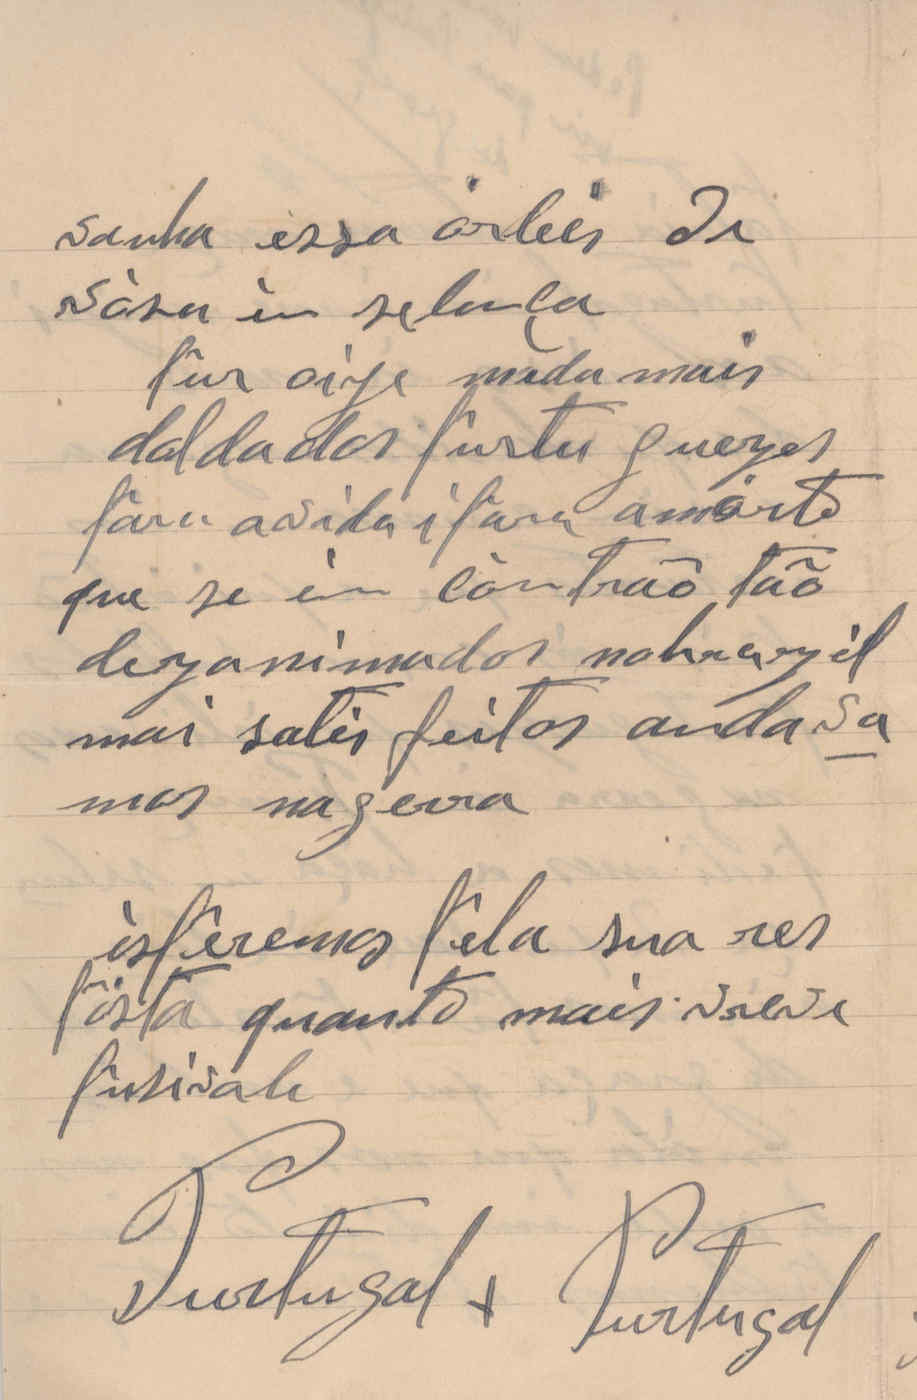 sanha essa órleis da
vósa in selença
pur oije mada mais
daldados purtu guezes
para avida i para amórte
que se in contraõ taõ
dezanimados nobrazil
mai satis feitos andava
mos nagerra
isperemos pela sua res
pósta quanto mais vreve
pusivale
Purtugal + Purtugal